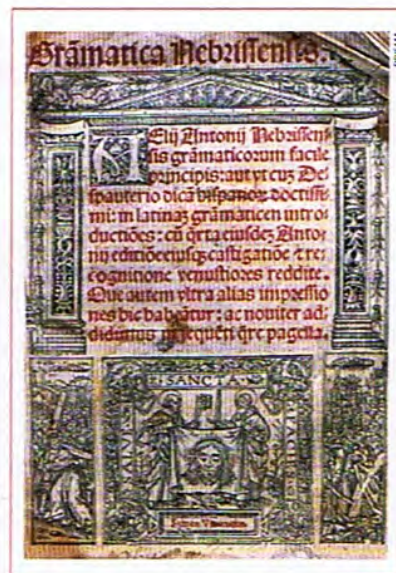 Grãmatica Nebrissensis.
AElij Antonij Nebrissen
sis grãmaticorum facile
principis: aut vt cuz Des
pauterio dicã hispanoꝝ doctissi
mi: in latinaȝ grãmaticen intro
ductiões: cũ q̃rta eiusdeȝ Anto
nij editiõe eiusqȝ castigatiõe ⁊ re
cognitione venustiores reddite.
Que autem vltra alias impressio
nes hic habeãtur: ac nouiter ad
didimus in sequẽti q̃re pagella.
SANCTA